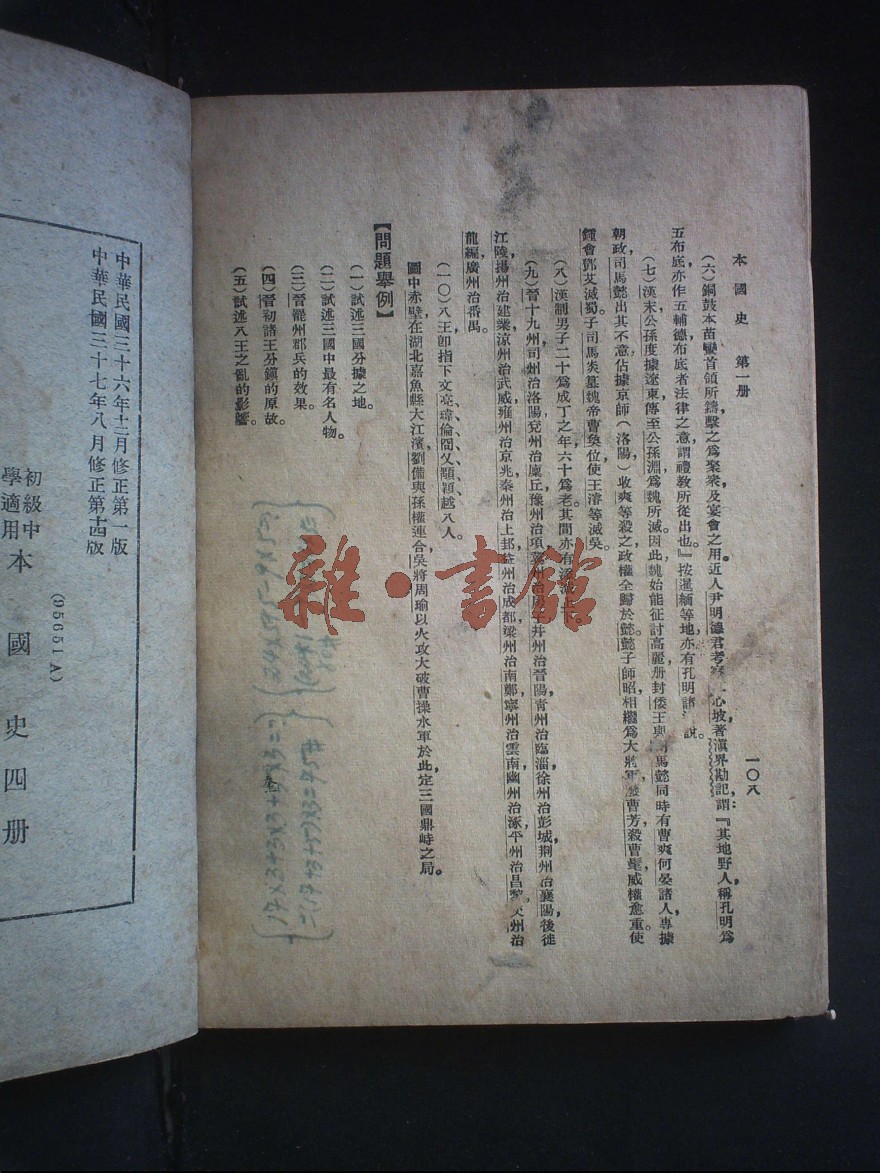 本國史 第一册
一〇八
(六)銅鼓本苗蠻首領所鑄,擊之爲聚衆及宴會之用。近人尹明德君考察 心坡,著滇界勘記,謂:『其地野人稱孔明爲
五布底,亦作五輔德布底者,法律之意,謂禮教所從出也。』按暹緬等地亦有孔明諸 說。
(七)漢末公孫度據遼東,傳至公孫淵,爲魏所滅。因此魏始能征討高麗,册封倭王與 司馬懿同時有曹爽何晏諸人專據
朝政,司馬懿出其不意佔據京師(洛陽)收爽等殺之,政權全歸於懿。懿子師昭相繼爲大將軍,廢曹芳,殺曹髦,威權愈重,使
鍾會鄧艾滅蜀。子司馬炎墓魏帝曹奐位,使王濬等滅吳。
(八)漢制男子二十爲成丁之年,六十爲老,其間亦有 上下
(九)晉十九州:司州治洛陽,兗州治廩丘,豫州治項,冀州治房子,幷州治晉陽,青州治臨淄,徐州治彭城,荆州治襄陽,後徙
江陵,揚州治建業,涼州治武威,雍州治京兆,秦州治上邽,益州治成都,梁州治南鄭,寧州治雲南,幽州治涿,平州治昌黎,交州治
龍編,廣州治番禺。
(一〇)八王卽指下文亮、瑋、倫、冏、乂、顒、穎、越八人。
圖中赤壁在湖北嘉魚縣大江濱,劉備與孫權連合,吳將周瑜以火攻大破曹操水軍於此,定三國鼎峙之局。
【問題舉例】
(一)試述三國分據之地。
(二)試述三國中最有名人物。
(三)晉罷州郡兵的效果。
(四)晉初諸王分鎭的原故。
(五)試述八王之亂的影響。
中華民國三十六年十二月修正第一版
中華民國三十七年八月修正第十四版
(95651A)
初級中
學適用
本國史四册
雜·書館